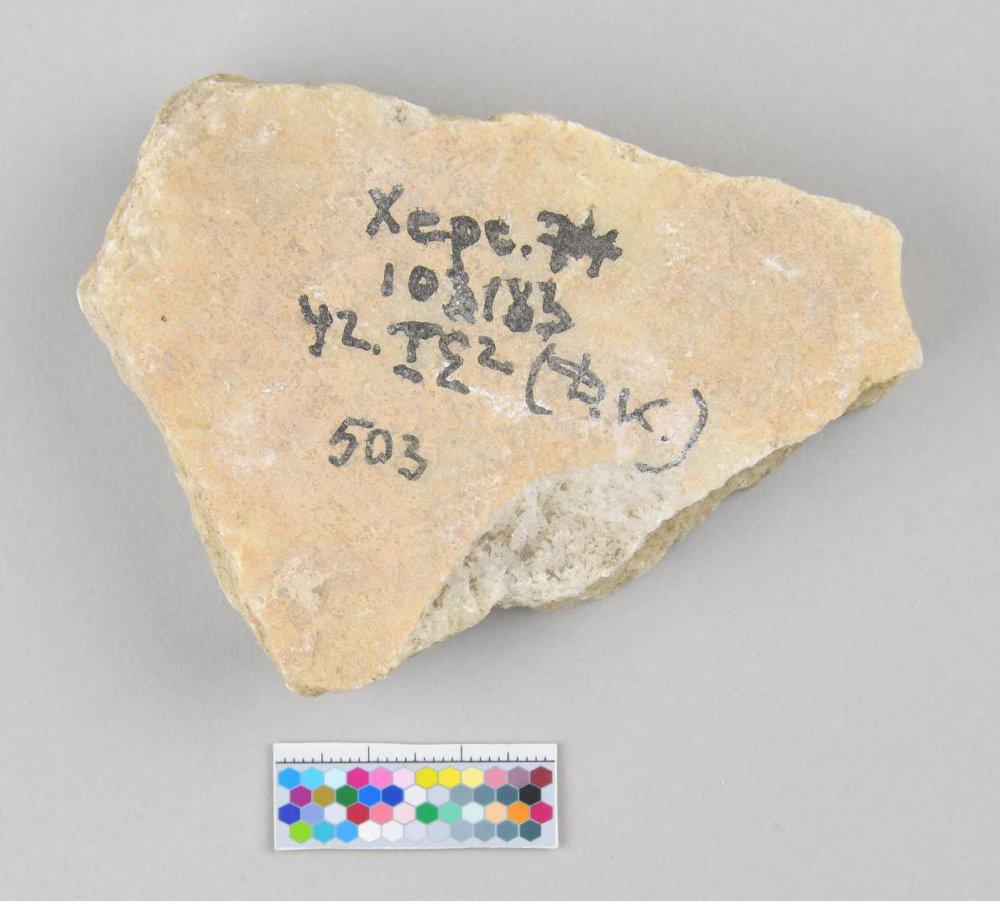 Херс.
10 /183
уг. I Σ 2 (Ф.К.)
503